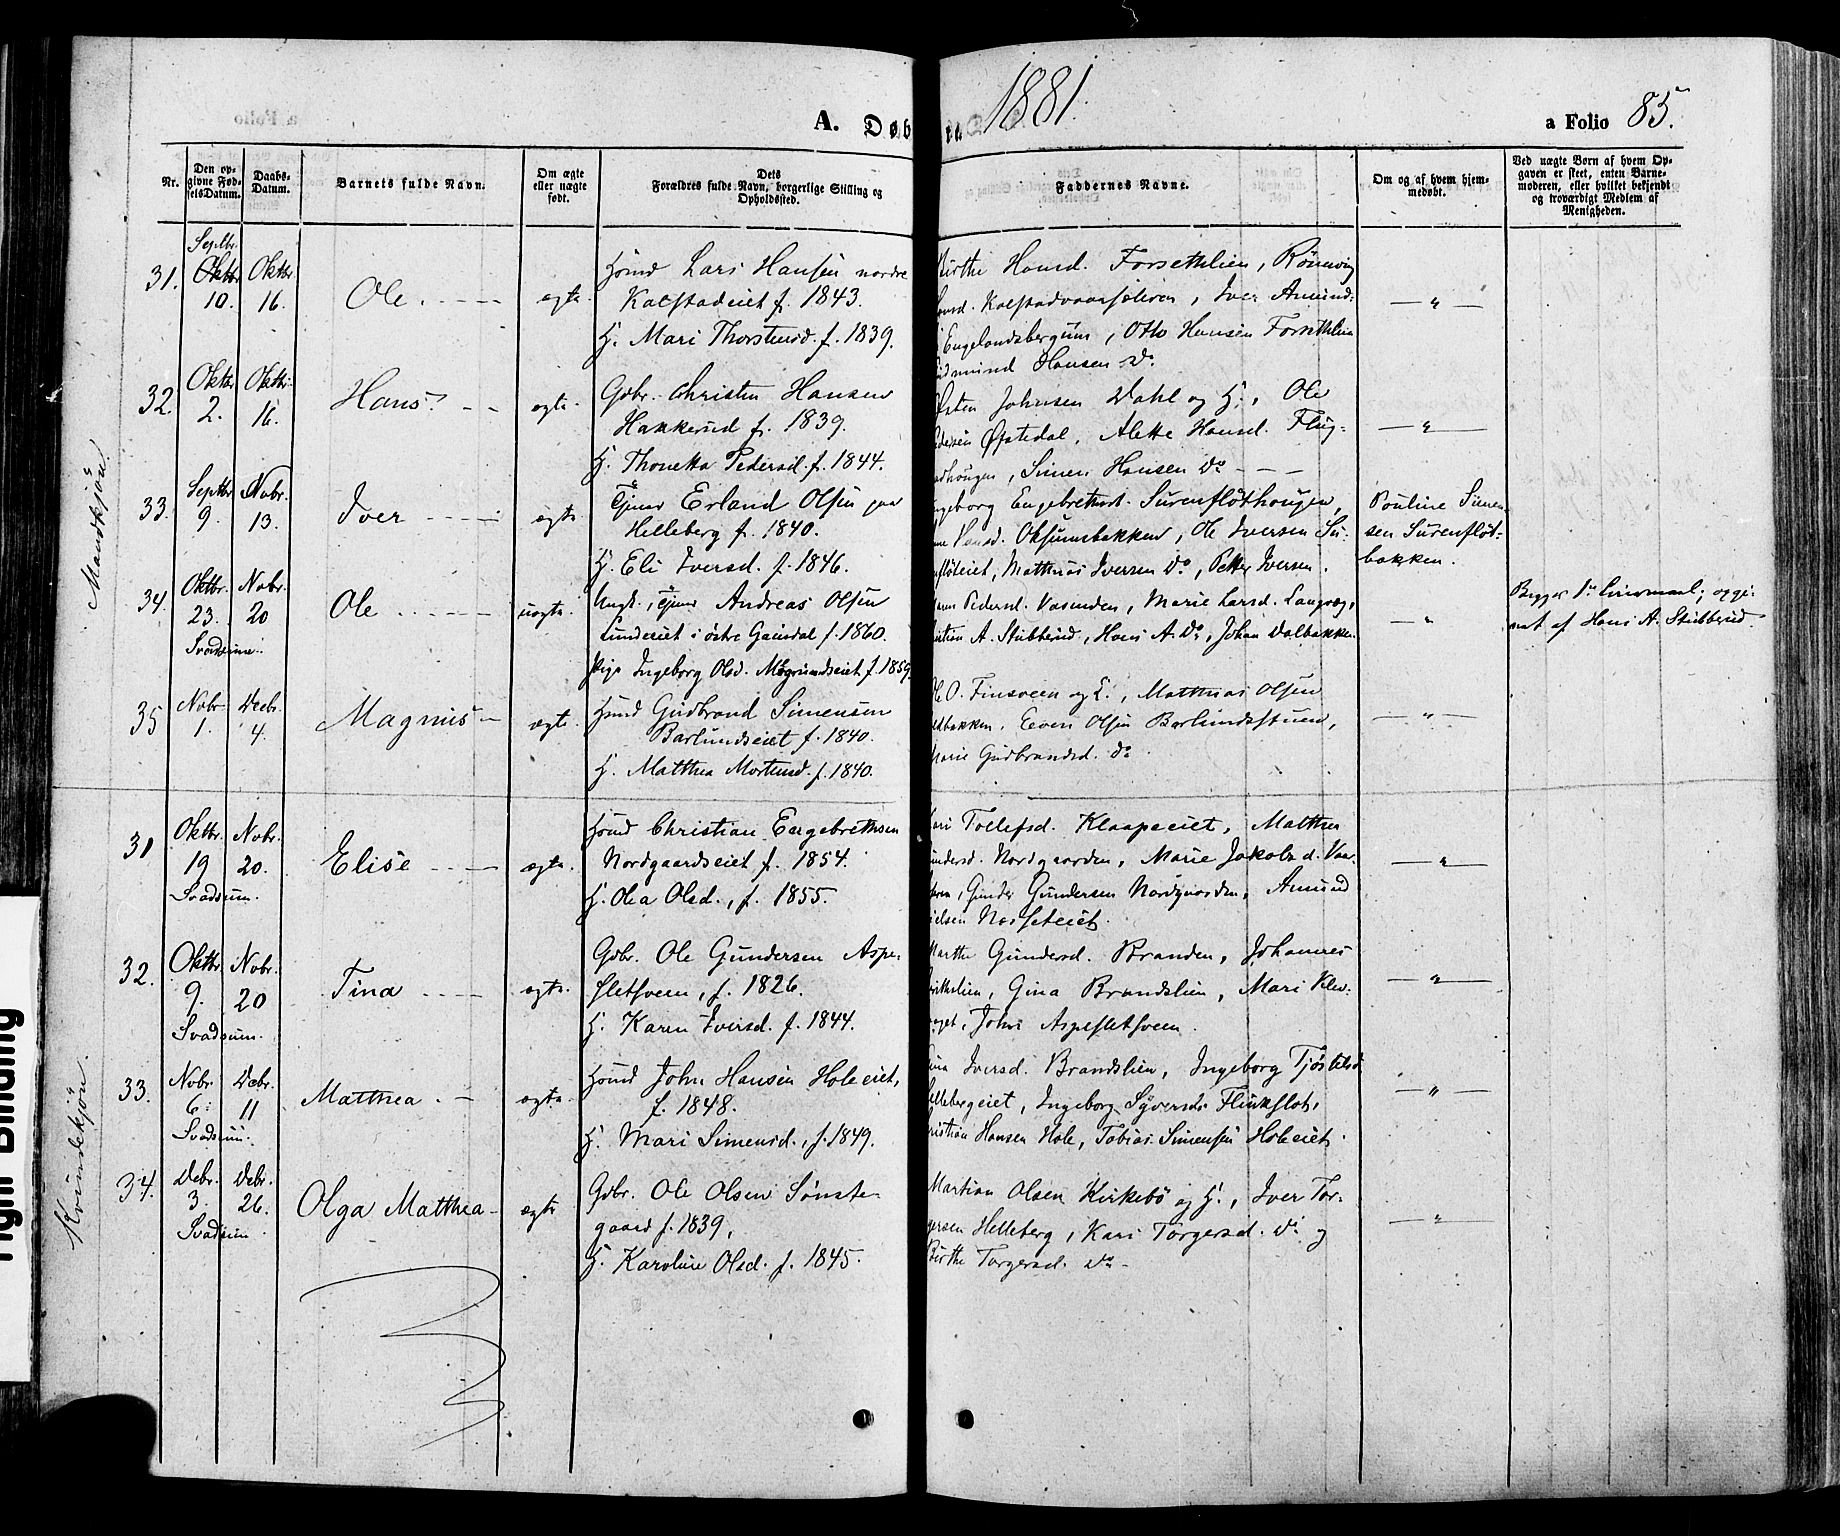 1881.
A. Døb
a Folio 85.
Nr.
Den op-
givne Fød-
selsDatum.
Daabs-
Datum.
Barnets fulde Navn.
Om ægte
eller uægte
født.
Dets
Forældres fulde Navn, borgerlige Stilling og
Opholdssted.
Faddernes Navne.
Om og af hvem hjem-
medøbt.
Ved uægte Børn af hvem Op-
gaven er skeet, enten Barne-
moderen, eller hvilket bekjendt
og troværdigt Medlem af
Menigheden.
Mandkjön.
31. Septbr. Oktbr. 10. Oktbr. 16. Ole. ægte.
Hŭsmd Lars Hansen nordre
Kalstadeiet f. 1843.
H. Mari Thorstensd. f. 1839.
Hansd. Forsethlien,
Kalstadvaarsæteren, Iver Amund-
Engelandsbergum, Otto Hansen Forsethlien
Hansen Do
— " —
32. Oktbr. 2. Oktbr. 16. Hans. ægte.
Gdbr. Christen Hansen
Hakkerud f. 1839.
H. Thonetta Pedersd. f. 1844.
Johnsen Dahl og H., Ole
Øfstedal, Alette Hansd. Flug-
Simen Hansen Do
— " —
33. Septbr. 9. Novbr. 13. Iver ægte
Tjener Erland Olsen paa
Helleberg f. 1840.
H. Eli Iversd. f. 1846.
Engebretsd. Surenflöthougen,
Oksumsbakken, Ole Iversen Su-
Matthias Iversen Do, Petter Iversen.
Pouline Simen-
sen Surenflöd-
bakken.
34. Oktbr. 23. Novbr. 20 Ole uægte.
Svadsum.
Ungk., Tjener Andreas Olsen
Lundeiet i östre Gausdal f. 1860.
Pige Ingeborg Olsd. f. 1859.
Pedersd. Marie Larsd.
A. Stubberud, Hans A. Do, Johan Dalbakken
"
Begges 1ste Leiermaal; opgi-
vet af Hans A. Stubberud
35 Novbr. 1. Decbr. 4. Magnus ægte.
Hŭsmd Gudbrand Simensen
Barlundseiet f. 1840.
H. Matthea Mortensd. f. 1840.
O. Finsveen og H., Matthias Olsen
Even Olsen Barlundstuen,
Marie Gudbrandsd. Do
— " —
Kvindekjön.
31 Oktbr. 19 Novbr. 20. Elise ægte.
Svadsum.
Hŭsmd Christian Engebrethsen
Nordgaardseiet f. 1854.
H. Olea Olsd., f. 1855.
Tollefsd. Klaapeeiet, Matthea
Nordgaarden, Marie Jakobsd.
Gunder Gundersen Nordgaarden, Amund
— " —
32. Oktbr. 9. Novbr. 20 Tina ægte.
Svadsum.
Gdbr. Ole Gundersen Aspe-
sletsveen, f. 1826.
H. Karen Iversd. f. 1844.
Marthe Gundersd. Branden, Johannes
Gina Brandslien, Mari
Johs Aspesletsveen.
— " —
33. Novbr. 6. Decbr. 11 Matthea. ægte.
Svadsum.
Hŭsmd John Hansen Holeeiet,
f. 1848.
H. Mari Simensd., f. 1849.
Iversd. Brandslien, Ingeborg
Ingeborg Syversd. Flinkslot,
Hansen Hole, Tobias Simensen Holeeiet.
— " —
34. Decbr. 3. Decbr. 26. Olga Matthea ægte
Svadsum.
Gdbr. Ole Olsen Sönste-
gaard f. 1839,
H. Karoline Olsd. f. 1845.
Martian Olsen Kirkebö og H., Iver Tor-
gersen Helleberg, Kari Torgersd. Do og
Birthe Torgersd. Do
— " —
Tight Binding